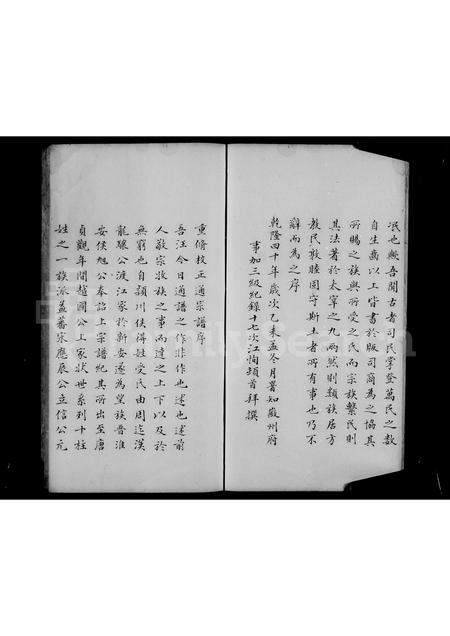 氓也輙吾聞古者司民掌登萬民之数
自生齒以上皆書於版司商為之協其
所賜之族與所受之氏而宗族繫民則
其法著於太宰之九兩然則類族居方
教民敦睦固守斯土者所有事也乃不
辭而為之序
乾隆四十年歲次乙未孟冬月署知徽州府
事加三級紀錄十七次江恂頓首拜撰
重脩校正通宗譜序
吾汪今日通譜之作非作也述也述前
人敬宗收族之事而達之上下以及於
無窮也自潁川侯得姓受氏由周迄漢
龍驤公渡江家於新安遂為望族晉淮
安侯旭公奉詔上宗譜紀其所出至唐
貞觀年間越國公上家狀世系列十柱
姓之一族派益蕃宋應辰公立信公元